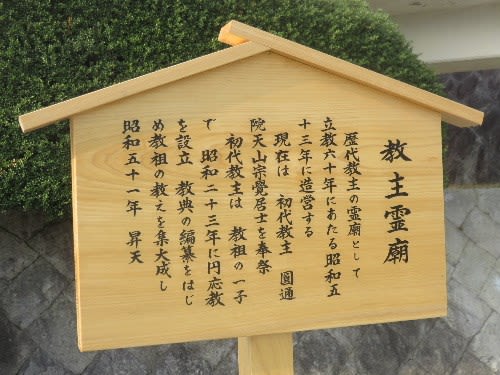 教主霊廟
歴代教主の霊廟として
立教六十年にあたる昭和五
十三年に造営する
現在は 初代教主 圓通
院天山宗覺居士を奉祭
初代教主は 教祖の一子
で 昭和二十三年に円応教
を設立 教典の編纂をはじ
め教祖の教えを集大成し
昭和五十一年 昇天